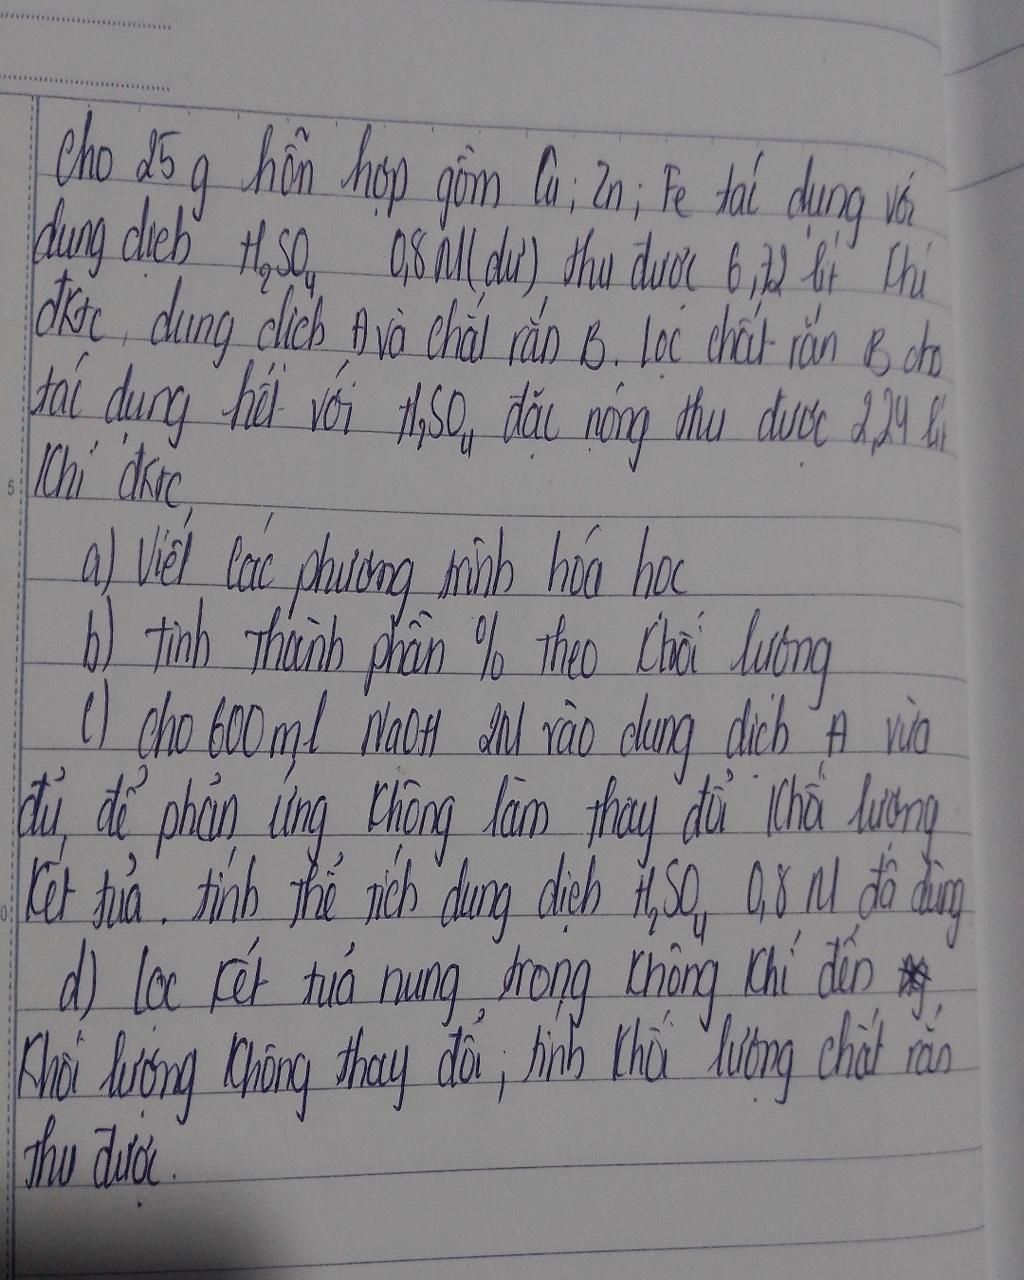 Cho 25 g hỗn hợp gồm Cu; Zn; Fe tác dụng với
dung dịch H₂SO₄ 0,8 M (dư) thu được 6,72 lit khí
đktc, dung dịch A và chất rắn B. Lọc chất rắn B cho
tác dụng hết với H₂SO₄ đặc nóng thu được 2,24 lit
khí đktc
a) Viết các phương trình hóa học
b) tính thành phần % theo khối lượng
c) cho 600 ml NaOH 2M vào dung dịch A vừa
đủ, để phản ứng không làm thay đổi khối lượng
kết tủa. tính thể tích dung dịch H₂SO₄ 0,8 M đã dùng
d) lọc kết tủa nung trong không khí đến
khối lượng không thay đổi; tính khối lượng chất rắn
thu được.
5